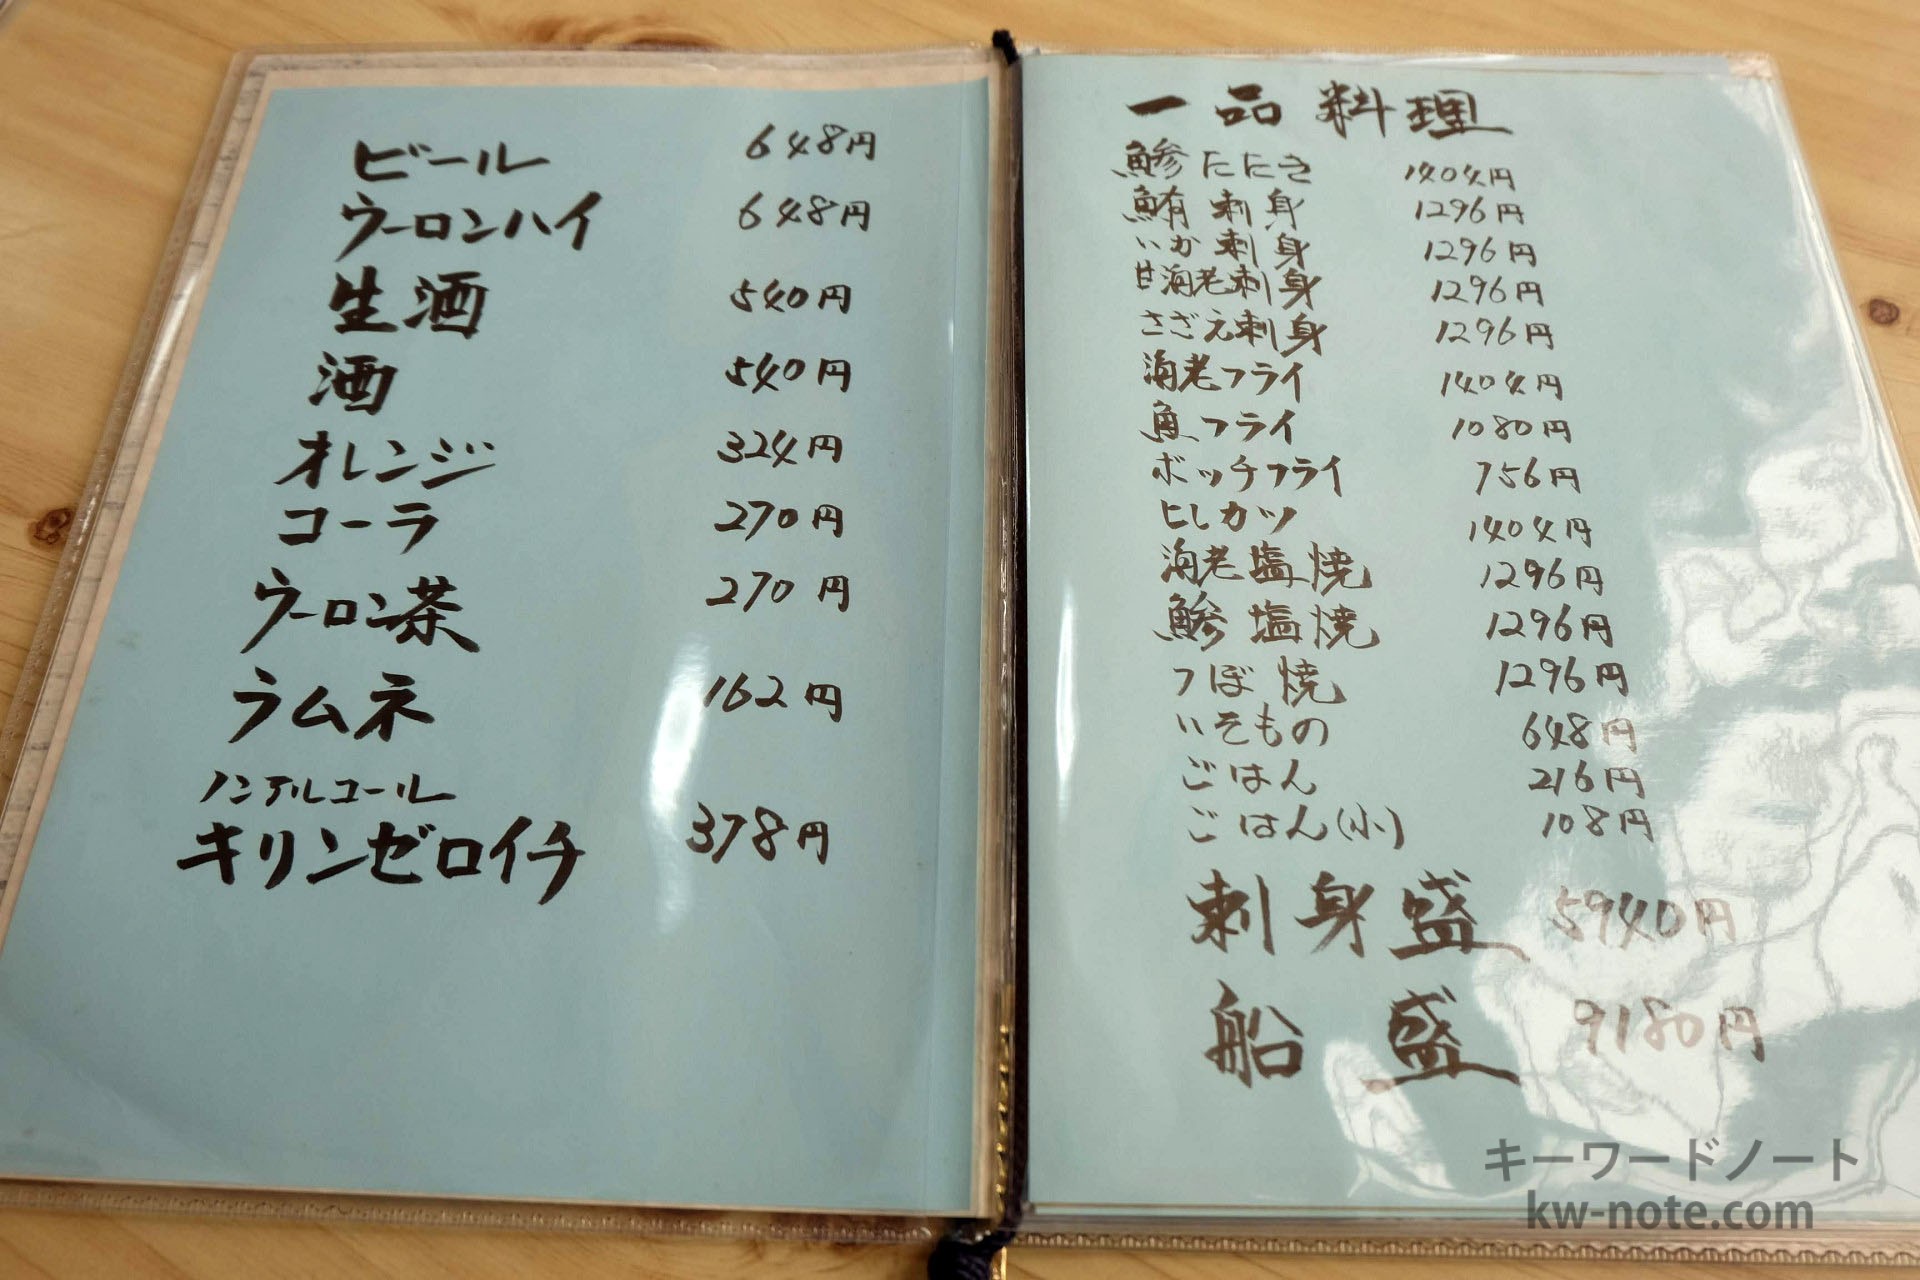 ビール 648円
ウーロンハイ 648円
生酒 540円
酒 540円
オレンジ 324円
コーラ 270円
ウーロン茶 270円
ラムネ 162円
ノンアルコール
キリンゼロイチ 378円
一品料理
鯵たたき 1404円
鮪刺身 1296円
いか刺身 1296円
甘海老刺身 1296円
さざえ刺身 1296円
海老フライ 1404円
魚フライ 1080円
ポッチフライ 756円
ヒレカツ 1404円
海老塩焼 1296円
鯵塩焼 1296円
つぼ焼 1296円
いそもの 648円
ごはん 216円
ごはん(小) 108円
刺身盛 5940円
船盛 9180円
キーワードノート
kw-note.com